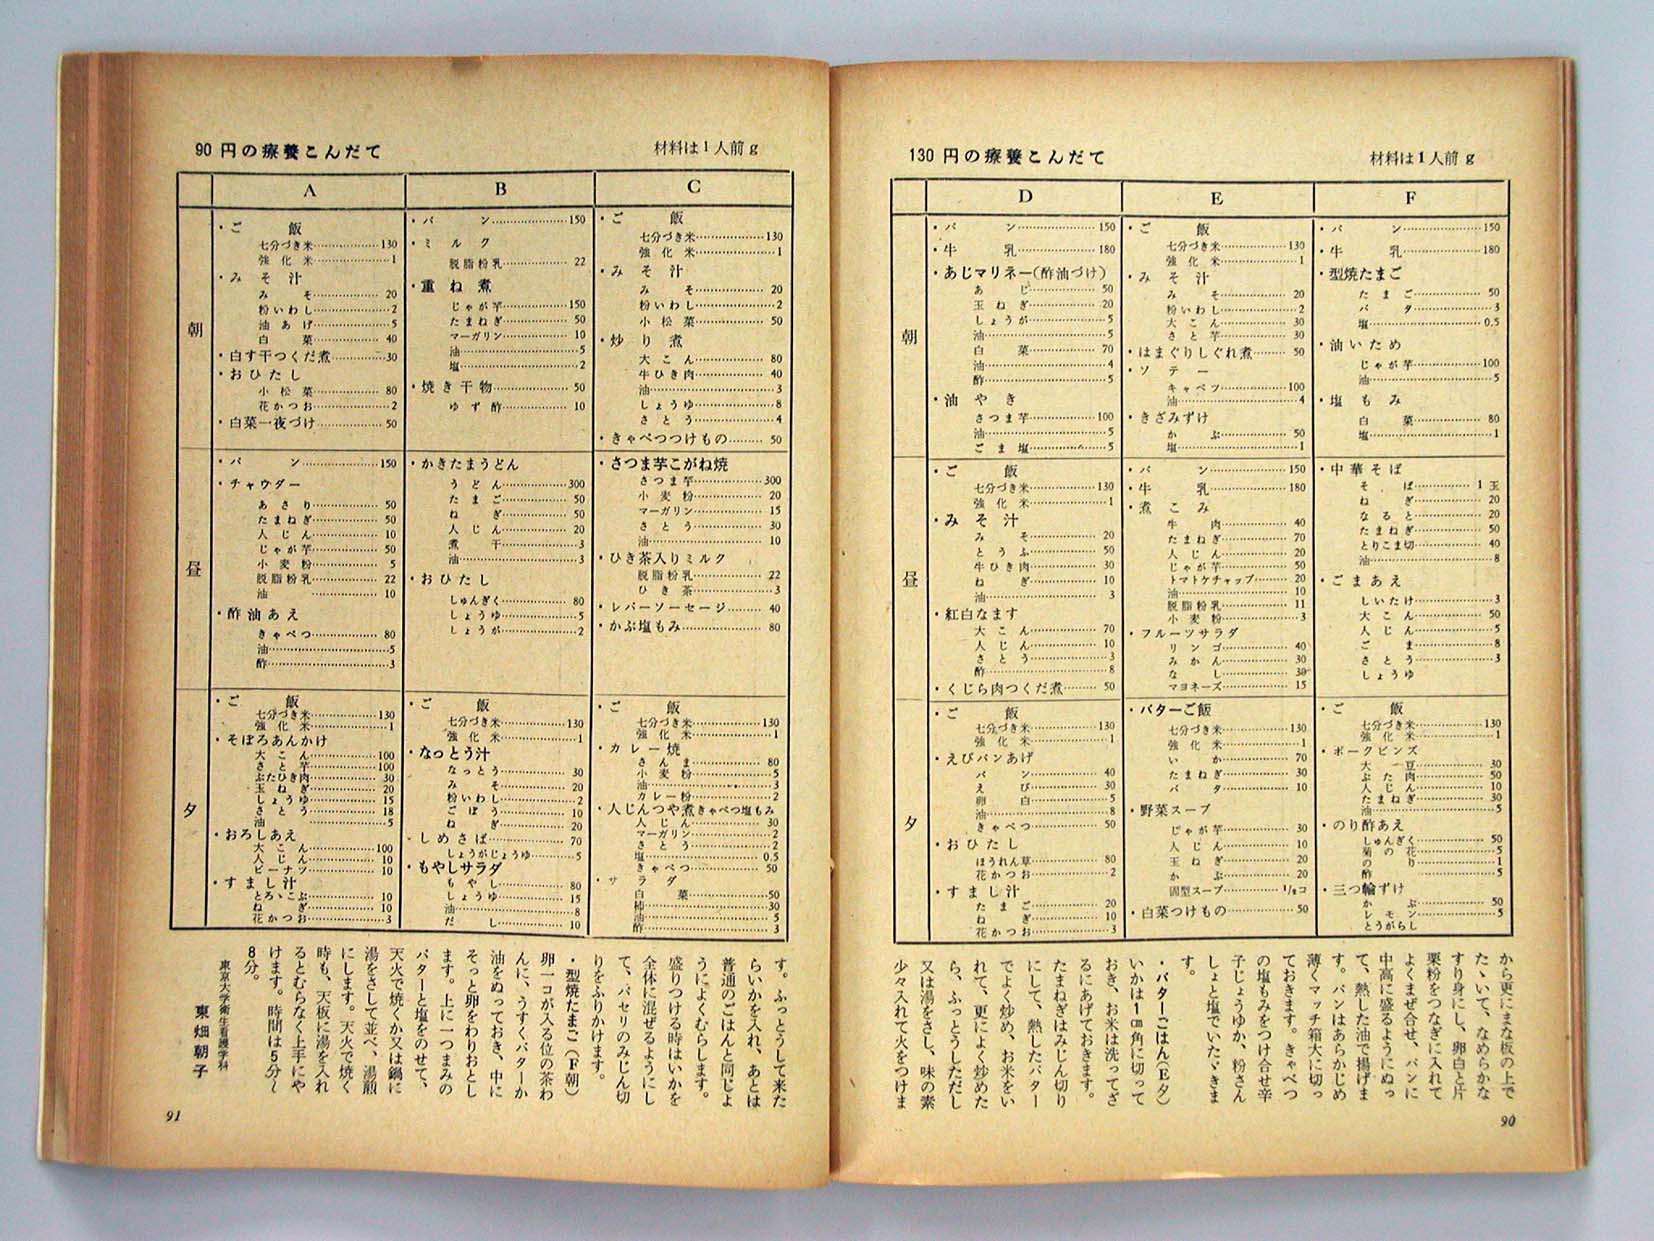 130 円の療養こんだて
材料は1人前 g
D
E
F
朝
・パン 150
・牛乳 180
・あじマリネー(酢油づけ)
あじ 50
玉ねぎ 20
しょうが 5
白菜 70
油 4
酢 5
・油やき
さつま芋 100
油 5
ごま塩 5
・ご飯
七分づき米 130
強化米 1
・みそ汁
みそ 20
粉いわし 2
大こん 30
さと芋 30
・はまぐりしぐれ煮 50
・ソテー
キャベツ 100
油 4
・きざみずけ
かぶ 50
塩 1
・パン 150
・牛乳 180
・型焼たまご
たまご 50
バタ 3
塩 0.5
・油いため
じゃが芋 100
油 5
・塩もみ
白菜 80
塩 1
昼
・ご飯
七分づき米 130
強化米 1
・みそ汁
みそ 20
とうふ 50
牛ひき肉 30
ねぎ 10
油 3
・紅白なます
大こん 70
人じん 10
さとう 3
酢 8
・くじら肉つくだ煮 50
・パン 150
・牛乳 180
・煮こみ
牛肉 40
たまねぎ 70
人じん 20
じゃが芋 50
トマトケチャップ 20
油 10
脱脂粉乳 11
小麦粉 3
・フルーツサラダ
リンゴ 40
みかん 30
なし 30
マヨネーズ 15
・中華そば
そば 1玉
ねぎ 20
なると 20
たまねぎ 50
とりこま切 40
油 8
・ごまあえ
しいたけ 3
大こん 50
人じん 5
ごま 8
さとう 3
しょうゆ
夕
・ご飯
七分づき米 130
強化米 1
・えびパンあげ
パン 40
えび 30
卵白 5
油 8
きゃべつ 50
・おひたし
ほうれん草 80
花かつお 2
・すまし汁
たまご 20
ねぎ 10
花かつお 3
・バターご飯
七分づき米 130
強化米 1
いか 70
たまねぎ 30
バタ 10
・野菜スープ
じゃが芋 30
人じん 10
玉ねぎ 20
かぶ 20
固型スープ 1/8コ
・白菜つけもの 50
・ご飯
七分づき米 130
強化米 1
・ポークビンズ
大豆 30
ぶた肉 50
人じん 10
たまねぎ 30
油 5
・のり酢あえ
しゅんぎく 50
菊の花 5
のり 1
酢 5
・三つ輪ずけ
かぶ 50
レモン 5
とうがらし
から更にまな板の上で
たゝいて、なめらかな
すり身にし、卵白と片
栗粉をつなぎに入れて
よくまぜ合せ、パンに
中高に盛るようにぬっ
て、熱した油で揚げま
す。パンはあらかじめ
薄くマッチ箱大に切っ
ておきます。きゃべつ
の塩もみをつけ合せ辛
子じょうゆか、粉さん
しょと塩でいたゞきま
す。
・バターごはん(E夕)
いかは1㎝角に切って
おき、お米は洗ってざ
るにあげておきます。
たまねぎはみじん切り
にして、熱したバター
でよく炒め、お米をい
れて、更によく炒めた
ら、ふっとうしただし
又は湯をさし、味の素
少々入れて火をつけま
90
90 円の療養こんだて
材料は1人前 g
A
B
C
朝
・ご飯
七分づき米 130
強化米 1
・みそ汁
みそ 20
粉いわし 2
油あげ 5
白菜 40
・白す干つくだ煮 30
・おひたし
小松菜 80
花かつお 2
・白菜一夜づけ 50
・パン 150
・ミルク
脱脂粉乳 22
・重ね煮
じゃが芋 150
たまねぎ 50
マーガリン 10
油 5
塩 2
・焼き干物 50
ゆず酢 10
・ご飯
七分づき米 130
強化米 1
・みそ汁
みそ 20
粉いわし 2
小松菜 50
・炒り煮
大こん 80
牛ひき肉 40
油 3
しょうゆ 8
さとう 4
・きゃべつつけもの 50
昼
・パン 150
・チャウダー
あさり 50
たまねぎ 50
人じん 10
じゃが芋 50
小麦粉 5
脱脂粉乳 22
油 10
・酢油あえ
きゃべつ 80
油 5
酢 3
・かきたまうどん
うどん 300
たまご 50
ねぎ 50
人じん 20
煮干 3
油 3
・おひたし
しゅんぎく 80
しょうゆ 5
しょうが 2
・さつま芋こがね焼
さつま芋 300
小麦粉 20
マーガリン 15
さとう 30
油 10
・ひき茶入りミルク
脱脂粉乳 22
ひき茶 3
・レバーソーセージ 40
・かぶ塩もみ 80
夕
・ご飯
七分づき米 130
強化米 1
・そぼろあんかけ
大こん 100
さと芋 100
ぶたひき肉 30
玉ねぎ 20
しょうゆ 15
さとう 18
油 5
・おろしあえ
大こん 100
人じん 10
ピーナツ 10
・すまし汁
とろゝこぶ 10
ねぎ 10
花かつお 3
・ご飯
七分づき米 130
強化米 1
・なっとう汁
なっとう 30
みそ 20
粉いわし 2
ごぼう 10
ねぎ 20
・しめさば 70
しょうがじょうゆ 5
・もやしサラダ
もやし 80
しょうゆ 15
油 8
だし 10
・ご飯
七分づき米 130
強化米 1
・カレー焼
さんま 80
小麦粉 5
油 3
カレー粉 2
・人じんつや煮きゃべつ塩もみ
人じん 30
マーガリン 2
さとう 2
塩 0.5
きゃべつ 50
・サラダ
白菜 50
柿 30
油 5
酢 3
す。ふっとうして来た
らいかを入れ、あとは
普通のごはんと同じよ
うによくむらします。
盛りつける時はいかを
全体に混ぜるようにし
て、パセリのみじん切
りをふりかけます。
・型焼たまご(F朝)
卵一コが入る位の茶わ
んに、うすくバターか
油をぬっておき、中に
そっと卵をわりおとし
ます。上に一つまみの
バターと塩をのせて、
天火で焼くか又は鍋に
湯をさして並べ、湯煎
にします。天火で焼く
時も、天板に湯を入れ
るとむらなく上手にや
けます。時間は5分〜
8分。
東京大学衛生看護学科
東畑朝子
91